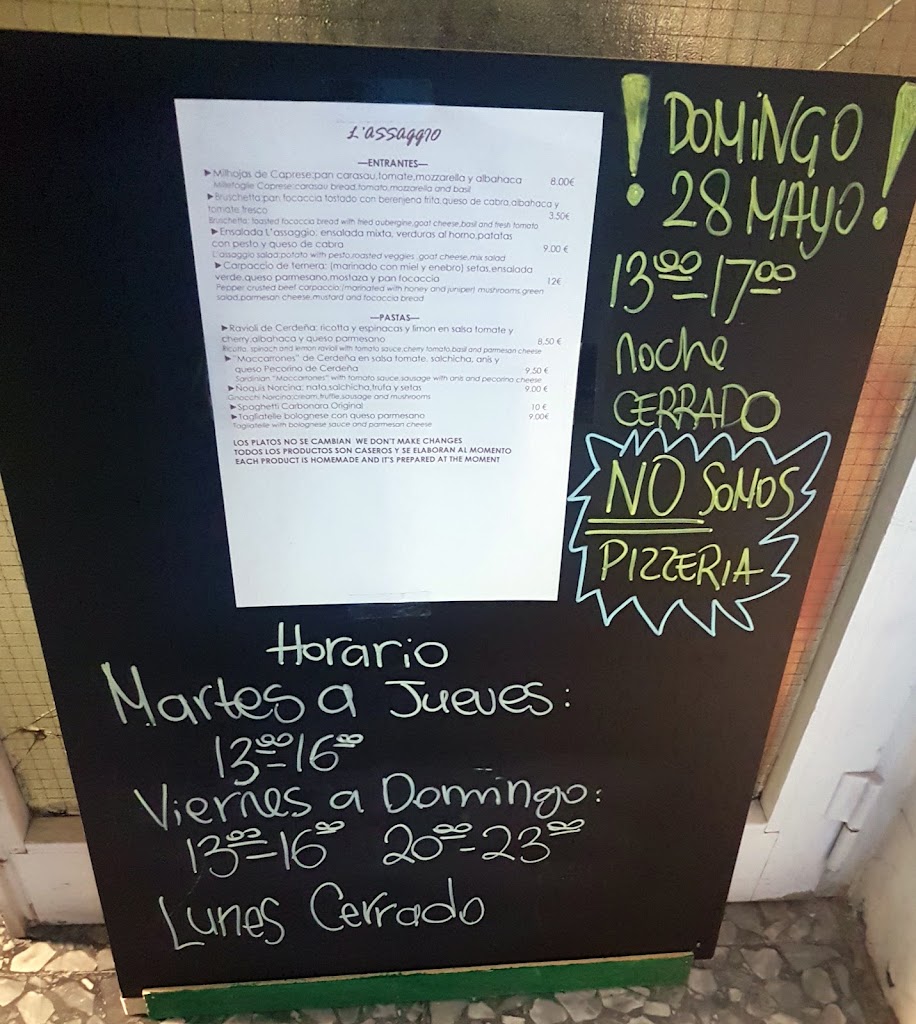 L'assaggio
—ENTRANTES—
►Milhojas de Caprese:pan carasau,tomate,mozzarella y albahaca 8.00€
Millefoglie Caprese:carasau bread,tomato,mozzarella and basil
►Bruschetta:pan focaccia tostado con berenjena frita,queso de cabra,albahaca y
tomate fresco 3.50€
Bruschetta: toasted focaccia bread with fried aubergine,goat cheese,basil and fresh tomato
►Ensalada L'assaggio: ensalada mixta, verduras al horno,patatas
con pesto y queso de cabra 9.00 €
L'assaggio salad:potato with pesto,roasted veggies ,goat cheese,mix salad
►Carpaccio de ternera: (marinado con miel y enebro) setas,ensalada
verde,queso parmesano,mostaza y pan focaccia 12€
Pepper crusted beef carpaccio (marinated with honey and juniper) mushrooms,green
salad,parmesan cheese,mustard and focaccia bread
—PASTAS—
►Ravioli de Cerdeña: ricotta y espinacas y limon en salsa tomate y
cherry,albahaca y queso parmesano 8.50 €
Ricotta, spinach and lemon ravioli with tomato sauce,cherry tomato,basil and parmesan cheese
►"Maccarrones" de Cerdeña en salsa tomate, salchicha, anis y
queso Pecorino de Cerdeña 9.50 €
Sardinian "Maccarrones" with tomato sauce,sausage with anis and pecorino cheese
►Ñoquis Norcina: nata,salchicha,trufa y setas 9.00 €
Gnocchi Norcina:cream,truffle,sausage and mushrooms
►Spaghetti Carbonara Original 10 €
►Tagliatelle bolognese con queso parmesano 9.00€
Tagliatelle with bolognese sauce and parmesan cheese
LOS PLATOS NO SE CAMBIAN WE DON'T MAKE CHANGES
TODOS LOS PRODUCTOS SON CASEROS Y SE ELABORAN AL MOMENTO
EACH PRODUCT IS HOMEMADE AND IT'S PREPARED AT THE MOMENT
! DOMINGO
28 MAYO !
13⁰⁰-17⁰⁰
noche
CERRADO
NO SOMOS
PIZZERIA
Horario
Martes a Jueves:
13⁰⁰-16⁰⁰
Viernes a Domingo:
13⁰⁰-16⁰⁰ 20⁰⁰-23⁰⁰
Lunes Cerrado